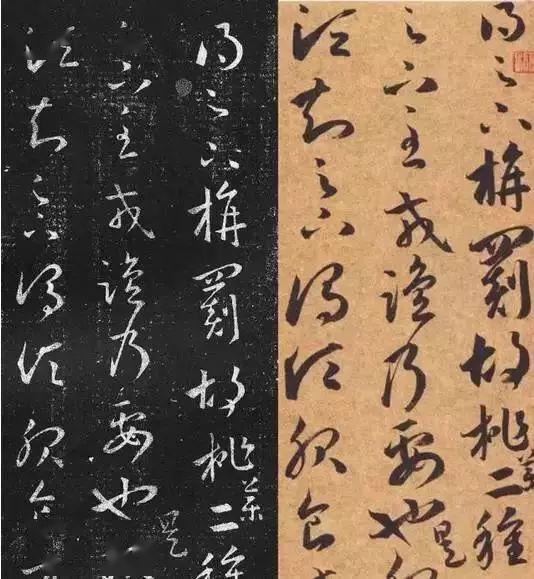 得足下旃罽胡桃藥二種
足下至戎鹽乃要也是
須知足下謂須服食
得足下旃罽胡桃藥二種
足下至戎鹽乃要也是
須知足下謂須服食